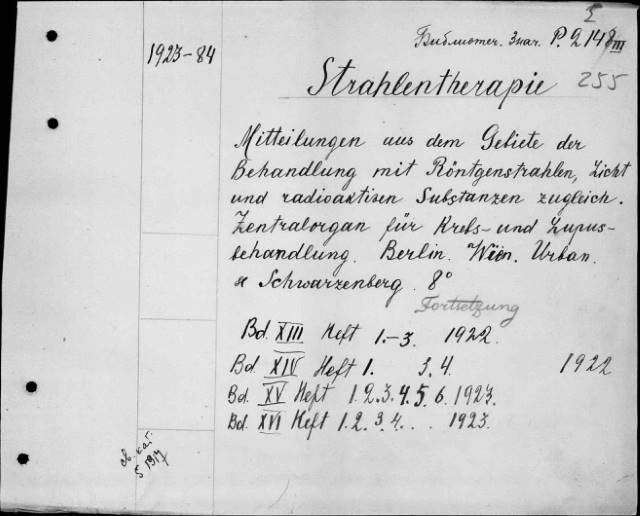 Σ
Библиотеч. знак. P. 2148 III
1923-84
Strahlentherapie
255
Mitteilungen aus dem Gebiete der
Behandlung mit Röntgenstrahlen, Licht
und radioaktiven Substanzen zugleich.
Zentralorgan für Krebs- und Lupus-
behandlung. Berlin. Wien. Urban.
u Schwarzenberg. 8°
Fortsetzung
Bd. XIII Heft 1.-3. 1922.
Bd. XIV Heft 1. 3. 4. 1922
Bd. XV Heft 1. 2. 3. 4. 5. 6. 1923.
Bd. XVI Heft 1. 2. 3. 4. . . 1923.
св. кат.
5 1917